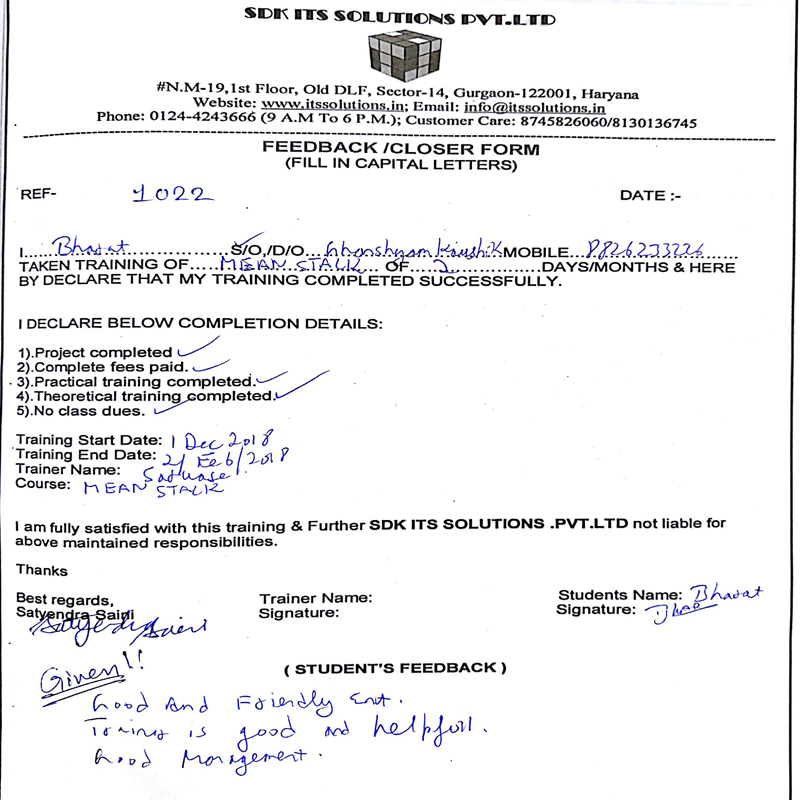 SDK ITS SOLUTIONS PVT.LTD
#N.M-19,1st Floor, Old DLF, Sector-14, Gurgaon-122001, Haryana
Website: www.itssolutions.in; Email: info@itssolutions.in
Phone: 0124-4243666 (9 A.M To 6 P.M.); Customer Care: 8745826060/8130136745
FEEDBACK /CLOSER FORM
(FILL IN CAPITAL LETTERS)
REF- 1022 DATE :-
I....Bharat....................S/O,/D/O...Ghanshyam Kaushik MOBILE...8826233226......
TAKEN TRAINING OF.....MEAN STALK... OF....2..............DAYS/MONTHS & HERE
BY DECLARE THAT MY TRAINING COMPLETED SUCCESSFULLY.
I DECLARE BELOW COMPLETION DETAILS:
1).Project completed ✓
2).Complete fees paid. ✓
3).Practical training completed. ✓
4).Theoretical training completed. ✓
5).No class dues. ✓
Training Start Date: 1 Dec 2018
Training End Date: 21 Feb/2018
Trainer Name:
Course: MEAN STALK
I am fully satisfied with this training & Further SDK ITS SOLUTIONS .PVT.LTD not liable for
above maintained responsibilities.
Thanks
Best regards, Trainer Name: Students Name: Bharat
Satyendra Saini Signature: Signature:
Given!!
( STUDENT'S FEEDBACK )
Good And Friendly Ent.
Training is good and helpfull.
Good Management.